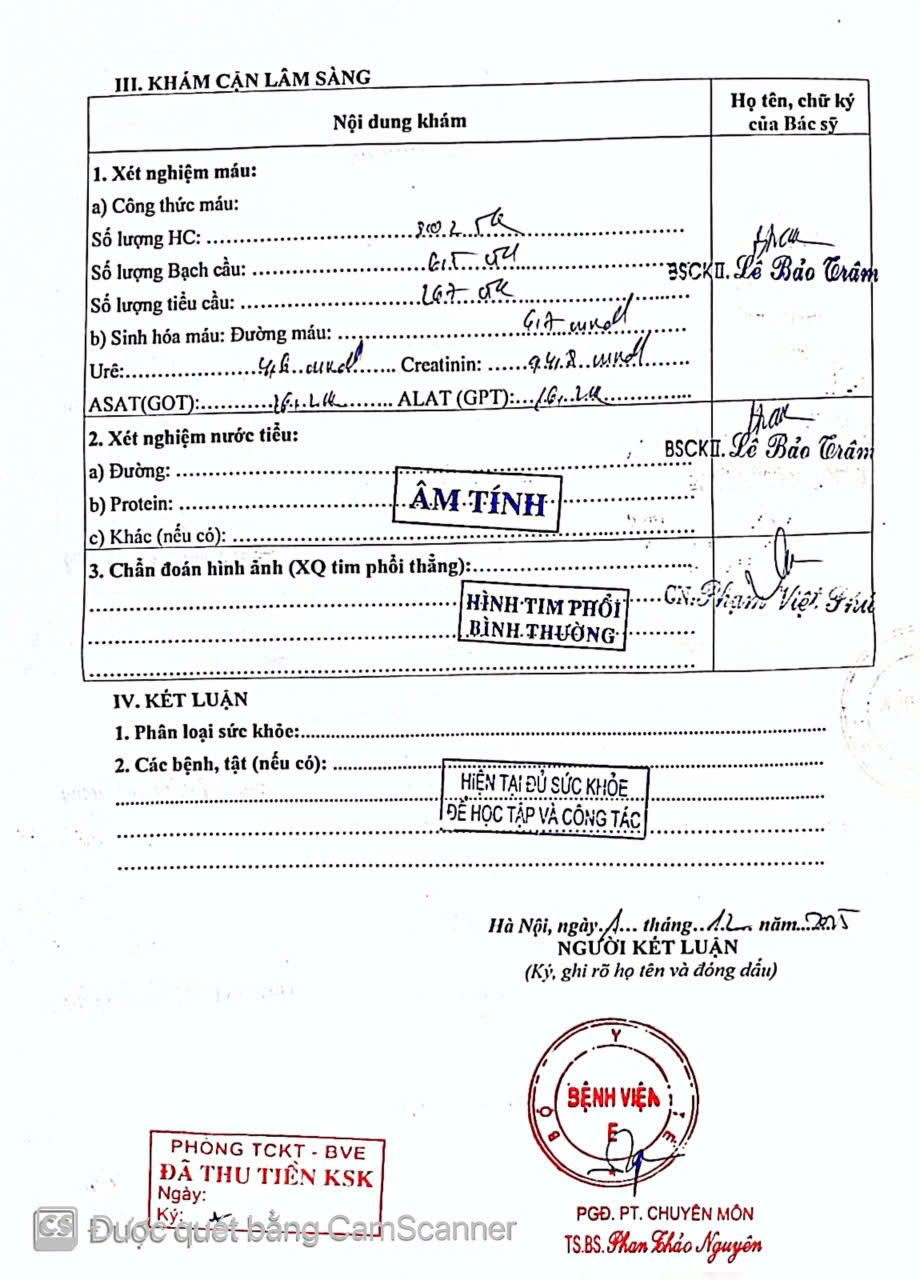 III. KHÁM CẬN LÂM SÀNG
Nội dung khám
Họ tên, chữ ký
của Bác sỹ
1. Xét nghiệm máu:
a) Công thức máu:
Số lượng HC:
Số lượng Bạch cầu:
Số lượng tiểu cầu: 267
BSCKII. Lê Bảo Trâm
b) Sinh hóa máu: Đường máu:
Urê: Creatinin: 94,8
ASAT(GOT): ALAT (GPT): 16,2
2. Xét nghiệm nước tiểu:
BSCKII. Lê Bảo Trâm
a) Đường:
b) Protein:
ÂM TÍNH
c) Khác (nếu có):
3. Chẩn đoán hình ảnh (XQ tim phổi thẳng):
HÌNH TIM PHỔI
BÌNH THƯỜNG
CN. Phạm Việt Phú
IV. KẾT LUẬN
1. Phân loại sức khỏe:
2. Các bệnh, tật (nếu có):
HIỆN TẠI ĐỦ SỨC KHỎE
ĐỂ HỌC TẬP VÀ CÔNG TÁC
Hà Nội, ngày 1 tháng 12 năm 2025
NGƯỜI KẾT LUẬN
(Ký, ghi rõ họ tên và đóng dấu)
BỘ Y TẾ
BỆNH VIỆN
E
PHÒNG TCKT - BVE
ĐÃ THU TIỀN KSK
Ngày:
Ký:
PGĐ. PT. CHUYÊN MÔN
TS.BS. Phan Thảo Nguyên
CS Được quét bằng CamScanner